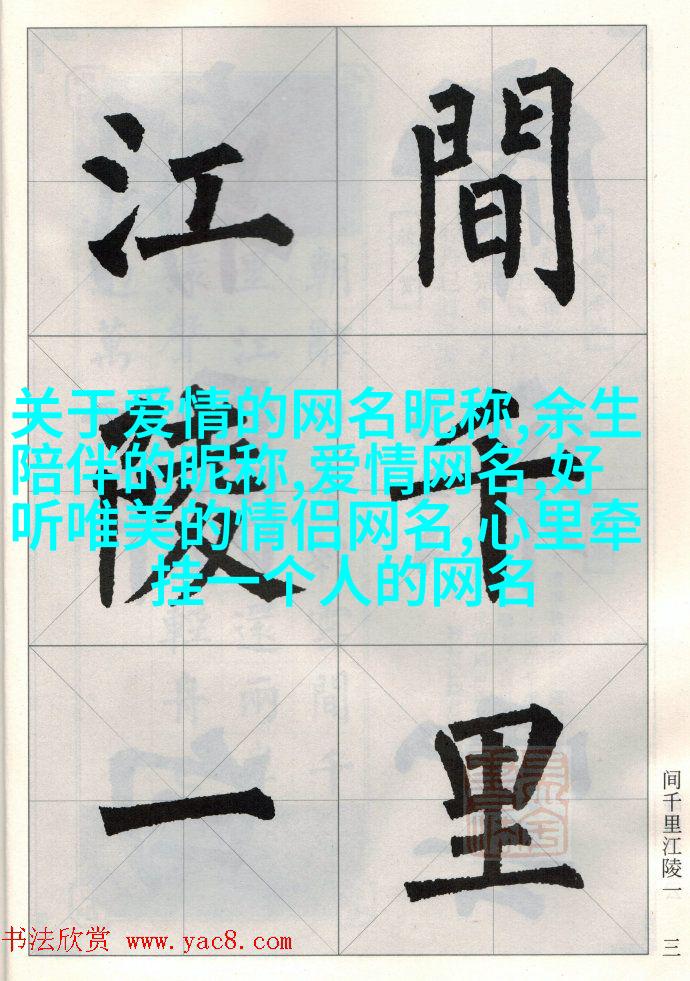 間千里
江陵一
关于爱情的网名昵称,余生
陪伴的昵称,爱情网名,好
听唯美的情侣网名,心里牵
挂一个人的网名
间千里江陵一 三
书法欣赏 www.yac8.com